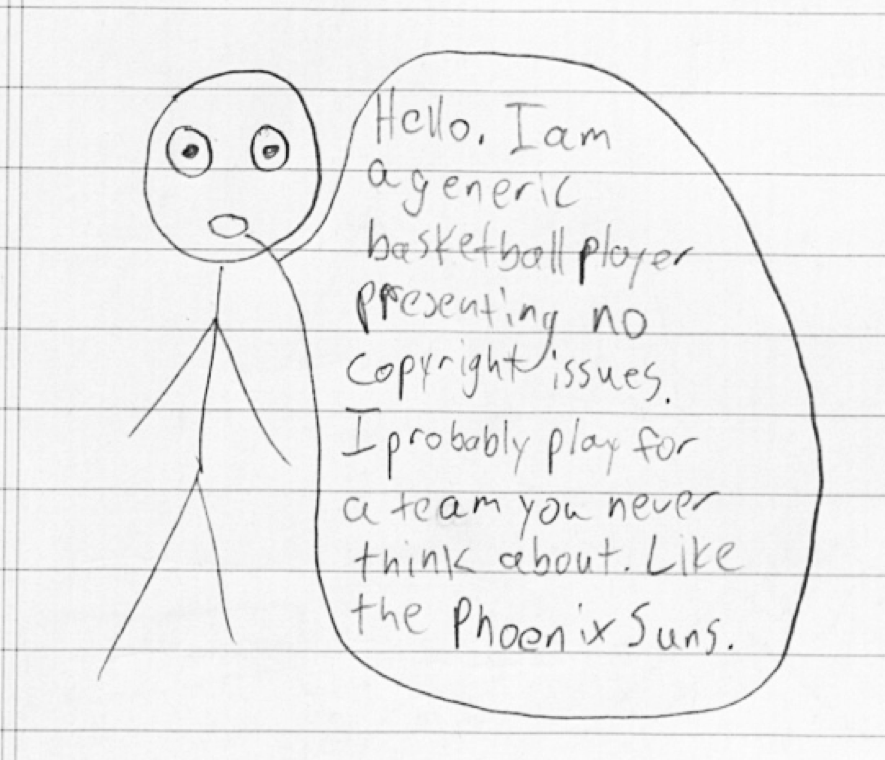 Hello. I am
a generic
basketball player
presenting no
copyright issues.
I probably play for
a team you never
think about. Like
the Phoenix Suns.